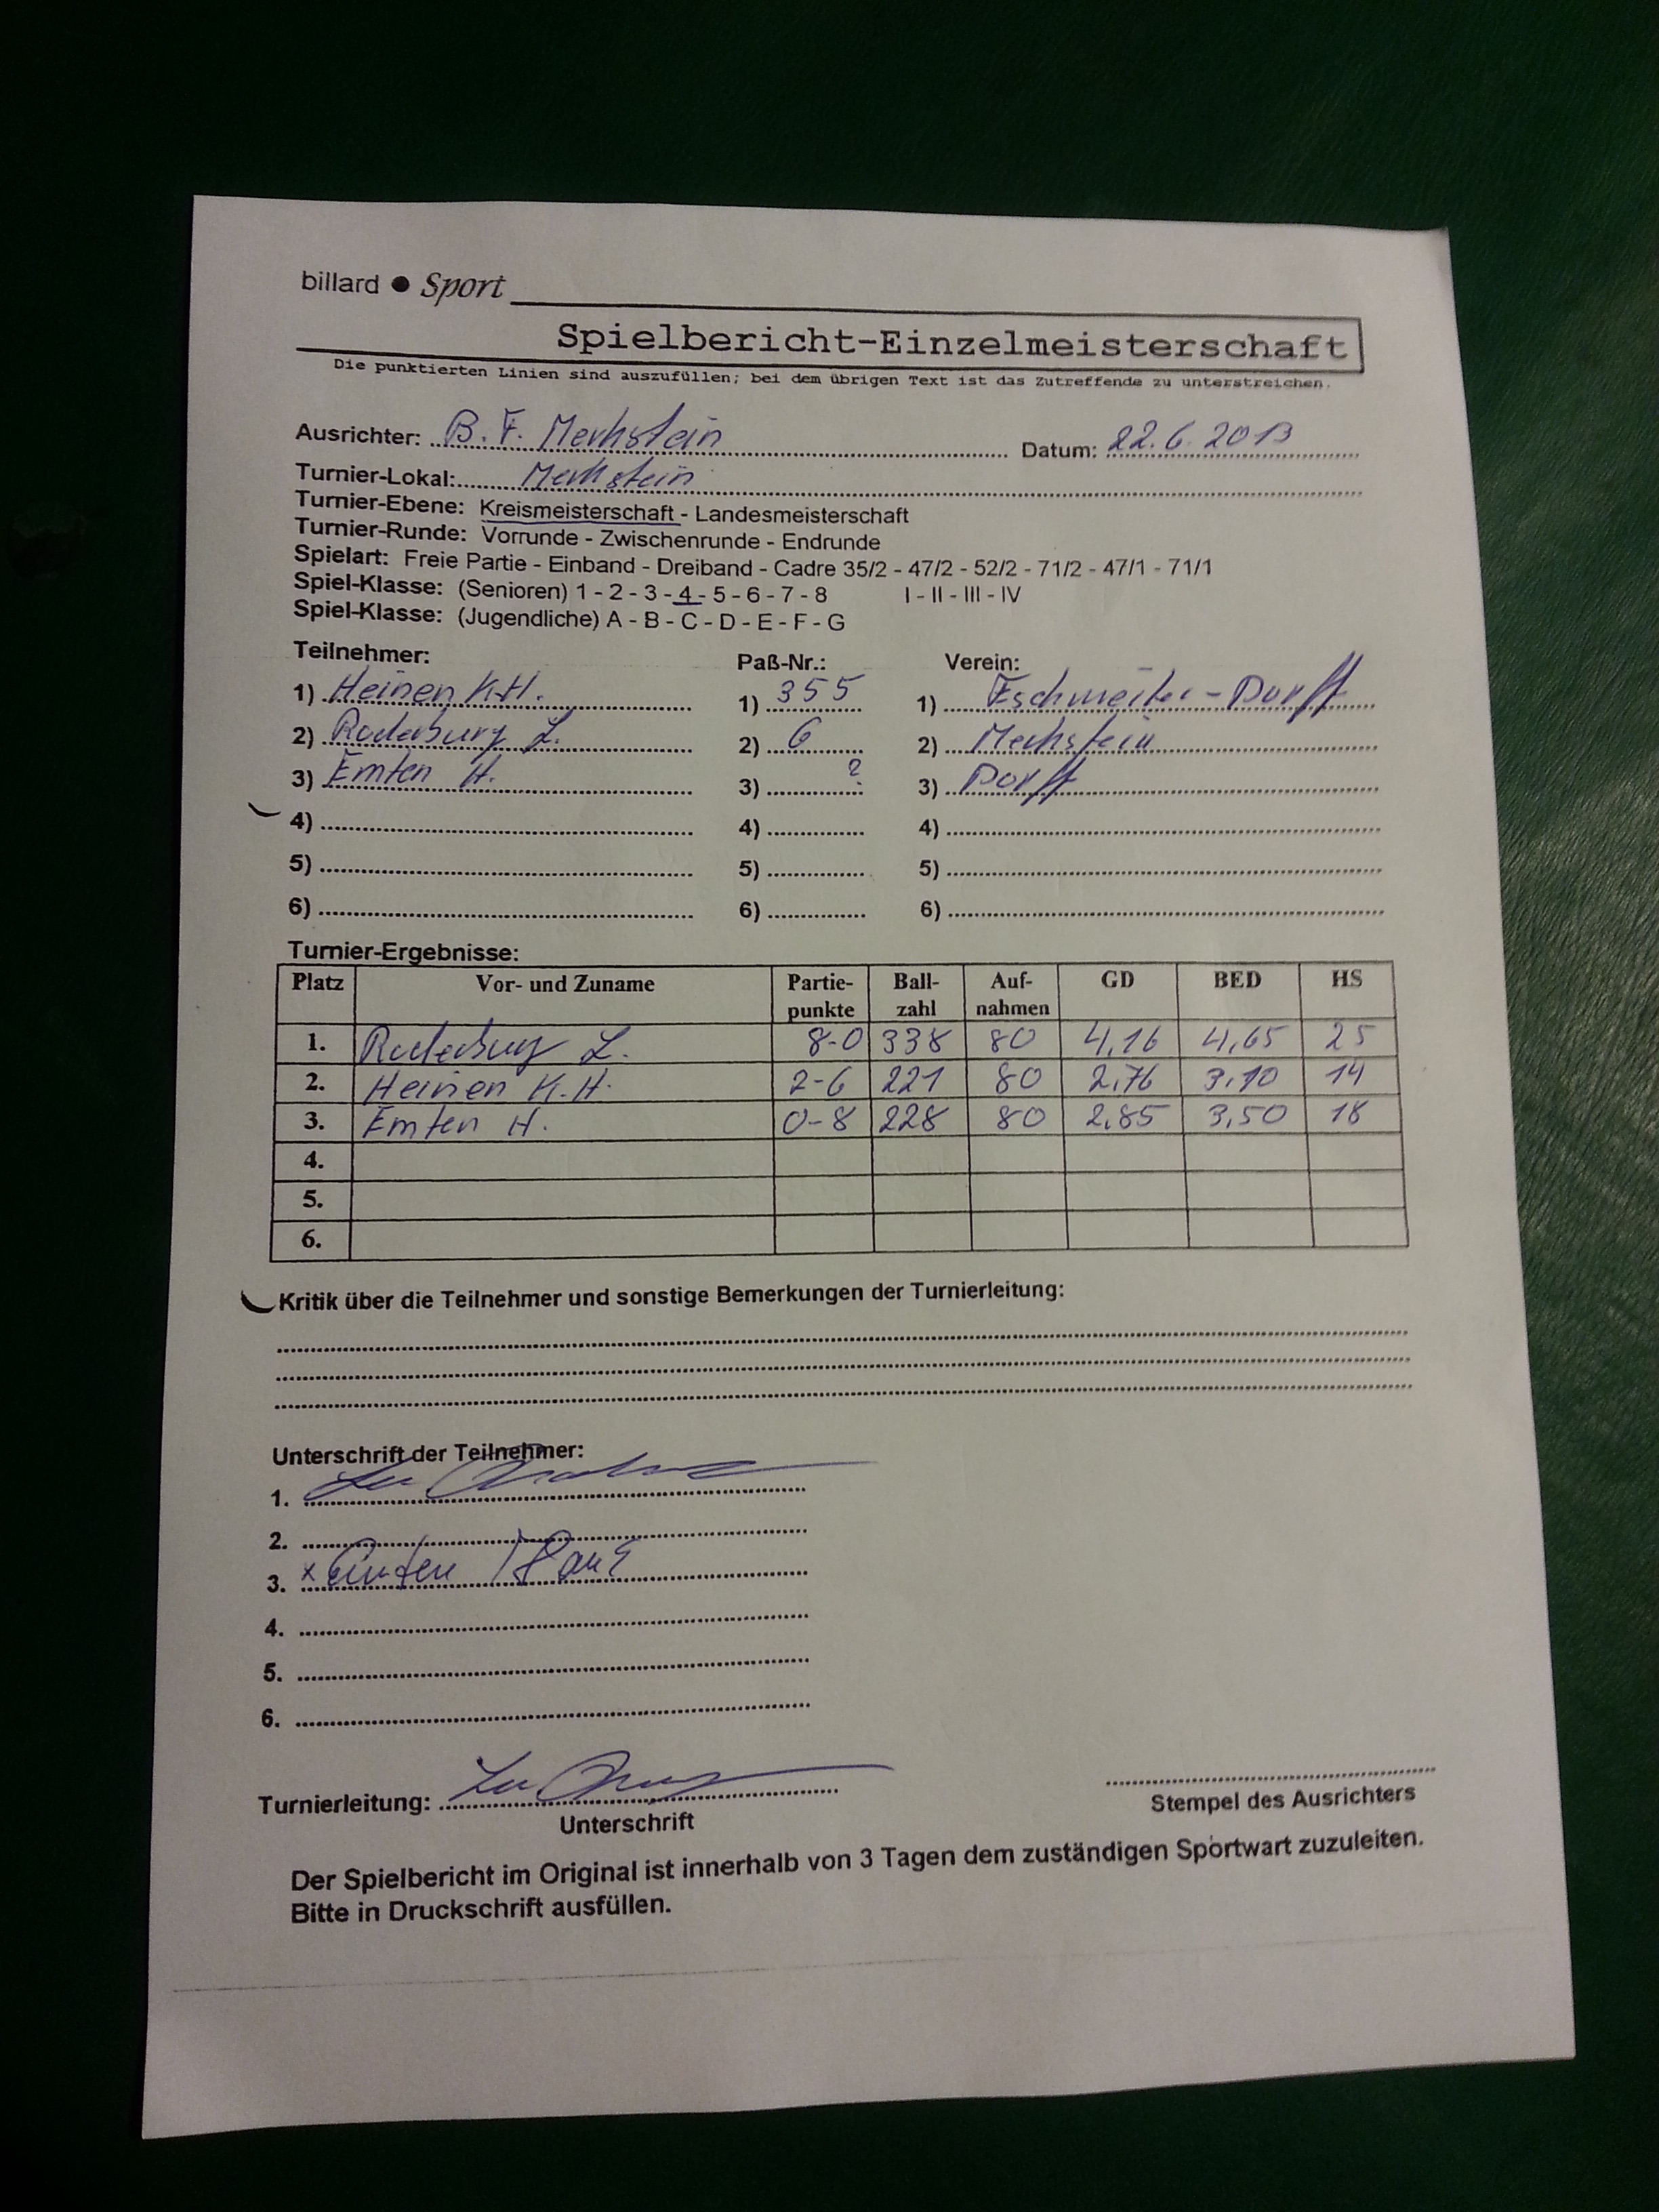 billard ● Sport
Spielbericht-Einzelmeisterschaft
Die punktierten Linien sind auszufüllen; bei dem übrigen Text ist das Zutreffende zu unterstreichen.
Ausrichter: B.F. Merkstein Datum: 22.6.2013
Turnier-Lokal: Merkstein
Turnier-Ebene: Kreismeisterschaft - Landesmeisterschaft
Turnier-Runde: Vorrunde - Zwischenrunde - Endrunde
Spielart: Freie Partie - Einband - Dreiband - Cadre 35/2 - 47/2 - 52/2 - 71/2 - 47/1 - 71/1
Spiel-Klasse: (Senioren) 1 - 2 - 3 - 4 - 5 - 6 - 7 - 8 I - II - III - IV
Spiel-Klasse: (Jugendliche) A - B - C - D - E - F - G
Teilnehmer: Paß-Nr.: Verein:
1) Heinen K.H. 1) 355 1) Eschweiler-Dorff
2) Roderburg L. 2) 6 2) Merkstein
3) Emten H. 3) ? 3) Dorff
4) 4) 4)
5) 5) 5)
6) 6) 6)
Turnier-Ergebnisse:
Platz Vor- und Zuname Partie-punkte Ball-zahl Auf-nahmen GD BED HS
1. Roderburg L. 8-0 338 80 4,16 4,65 25
2. Heinen K.H. 2-6 221 80 2,76 3,10 14
3. Emten H. 0-8 228 80 2,85 3,50 18
4.
5.
6.
Kritik über die Teilnehmer und sonstige Bemerkungen der Turnierleitung:
Unterschrift der Teilnehmer:
1.
2.
3. x Emten
4.
5.
6.
Turnierleitung:
Unterschrift
Stempel des Ausrichters
Der Spielbericht im Original ist innerhalb von 3 Tagen dem zuständigen Sportwart zuzuleiten.
Bitte in Druckschrift ausfüllen.